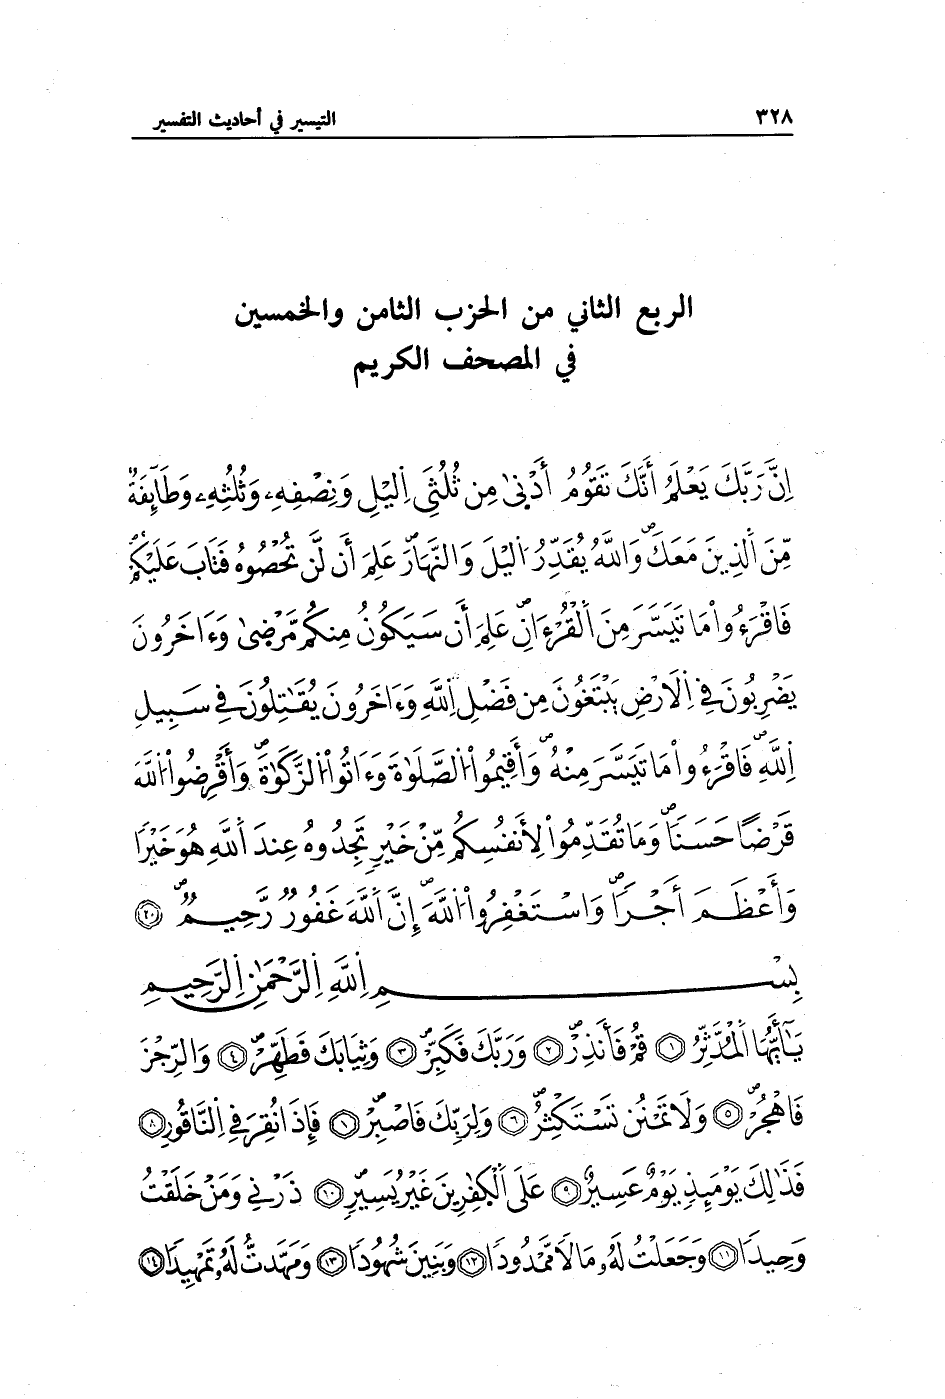 ٣٢٨ التيسير في أحاديث التفسير
الربع الثاني من الحزب الثامن والخمسين
في المصحف الكريم
إِنَّ رَبَّكَ يَعْلَمُ أَنَّكَ تَقُومُ أَدْنىٰ مِن ثُلُثَيِ اِليْلِ وَنِصْفِهِۦ وَثُلُثِهِۦ وَطَآئِفَةٌ
مِّنَ اَلذِينَ مَعَكَۖ وَاللَّهُ يُقَدِّرُ اُليْلَ وَالنَّهَارَۖ عَلِمَ أَن لَّن تُحْصُوهُ فَتَابَ عَلَيْكُمْۖ
فَاقْرَءُواْ مَا تَيَسَّرَ مِنَ اَلْقُرْءَانِۖ عَلِمَ أَن سَيَكُونُ مِنكُم مَّرْضىٰ وَءَاخَرُونَ
يَضْرِبُونَ فِي اِلَارْضِ يَبْتَغُونَ مِن فَضْلِ اِللَّهِ وَءَاخَرُونَ يُقَٰتِلُونَ فِي سَبِيلِ
اِللَّهِۖ فَاقْرَءُواْ مَا تَيَسَّرَ مِنْهُۖ وَأَقِيمُواْ اُلصَّلَوٰةَ وَءَاتُواْ اُلزَّكَوٰةَۖ وَأَقْرِضُواْ اُللَّهَ
قَرْضًا حَسَنًاۖ وَمَا تُقَدِّمُواْ لِأَنفُسِكُم مِّنْ خَيْرٍ تَجِدُوهُ عِندَ اَللَّهِ هُوَ خَيْرًا
وَأَعْظَمَ أَجْرًاۖ وَاسْتَغْفِرُواْ اُللَّهَۖ إِنَّ اَللَّهَ غَفُورٌ رَّحِيمٌۖ ٢٠
بِسْمِ اِللَّهِ اِلرَّحْمَٰنِ اِلرَّحِيمِ
يَٰٓأَيُّهَا اَلْمُدَّثِّرُ ١ قُمْ فَأَنذِرْۖ ٢ وَرَبَّكَ فَكَبِّرْۖ ٣ وَثِيَابَكَ فَطَهِّرْۖ ٤ وَالرِّجْزَ
فَاهْجُرْۖ ٥ وَلَا تَمْنُن تَسْتَكْثِرُۖ ٦ وَلِرَبِّكَ فَاصْبِرْۖ ١ فَإِذَا نُقِرَ فِي اِلنَّاقُورِ ٨
فَذَٰلِكَ يَوْمَئِذٍ يَوْمٌ عَسِيرٌ ٩ عَلَى اَلْكٰفِرِينَ غَيْرُ يَسِيرٍۖ ١٠ ذَرْنِي وَمَنْ خَلَقْتُ
وَحِيدًا ١١ وَجَعَلْتُ لَهُۥ مَالًا مَّمْدُودًا ١٢ وَبَنِينَ شُهُودًا ١٣ وَمَهَّدتُّ لَهُۥ تَمْهِيدًا ١٤